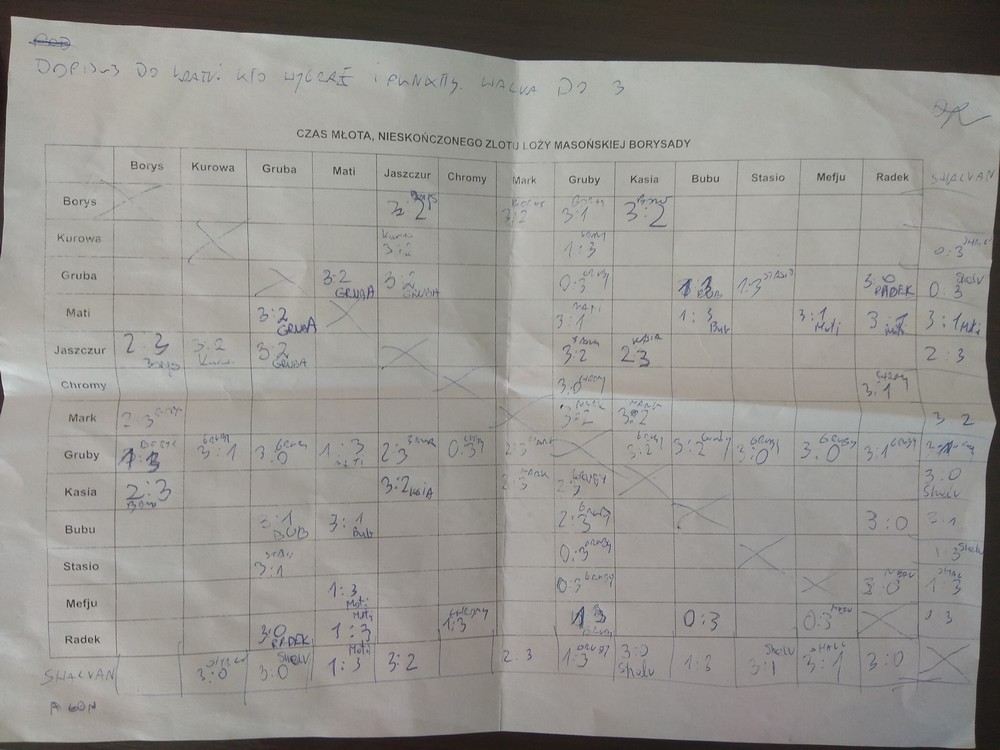 DO KRATKI KTO WYGRAŁ I PUNKTY. WALKA DO 3
CZAS MŁOTA, NIESKOŃCZONEGO ZLOTU LOŻY MASOŃSKIEJ BORYSADY
Borys Kurowa Gruba Mati Jaszczur Chromy Mark Gruby Kasia Bubu Stasio Mefju Radek SHALVAN
Borys 3:2 3:2 3:1 3:2
Kurowa 3:2 1:3 0:3
Gruba 3:2 GRUBA 3:2 GRUBA 0:3 1:3 BUB 1:3 STASIO 3:0 RADEK 0:3 Shalv
Mati 3:2 GRUBA 3:1 1:3 Bub 3:1 Mati 3:1 Mati 3:1 Mati
Jaszczur 2:3 Borys 3:2 3:2 GRUBA 3:2 2:3 KASIA 2:3
Chromy 3:0 3:1
Mark 2:3 3:2 3:2 MARK 3:2
Gruby 1:3 BORYS 3:1 GRUBY 3:0 GRUBY 1:3 MATI 2:3 0:3 2:3 MARK 3:2 GRUBY 3:2 Gruby 3:0 GRUBY 3:0 GRUBY 3:1 GRUBY
Kasia 2:3 3:2 KASIA 2:3 MARK 2:3 GRUBY 3:0 Shalv
Bubu 3:1 BUB 3:1 Bub 2:3 3:0 3:1
Stasio 3:1 0:3 GRUBY 1:3 Shalv
Mefju 1:3 Mati 0:3 GRUBY 3:0 1:3
Radek 3:0 RADEK 1:3 Mati 1:3 CHROMY 1:3 0:3 0:3
SHALVAN 3:0 3:0 Shalv 1:3 Mati 3:2 2:3 1:3 GRUBY 3:0 Shalv 1:3 3:1 Shalv 3:1 3:0